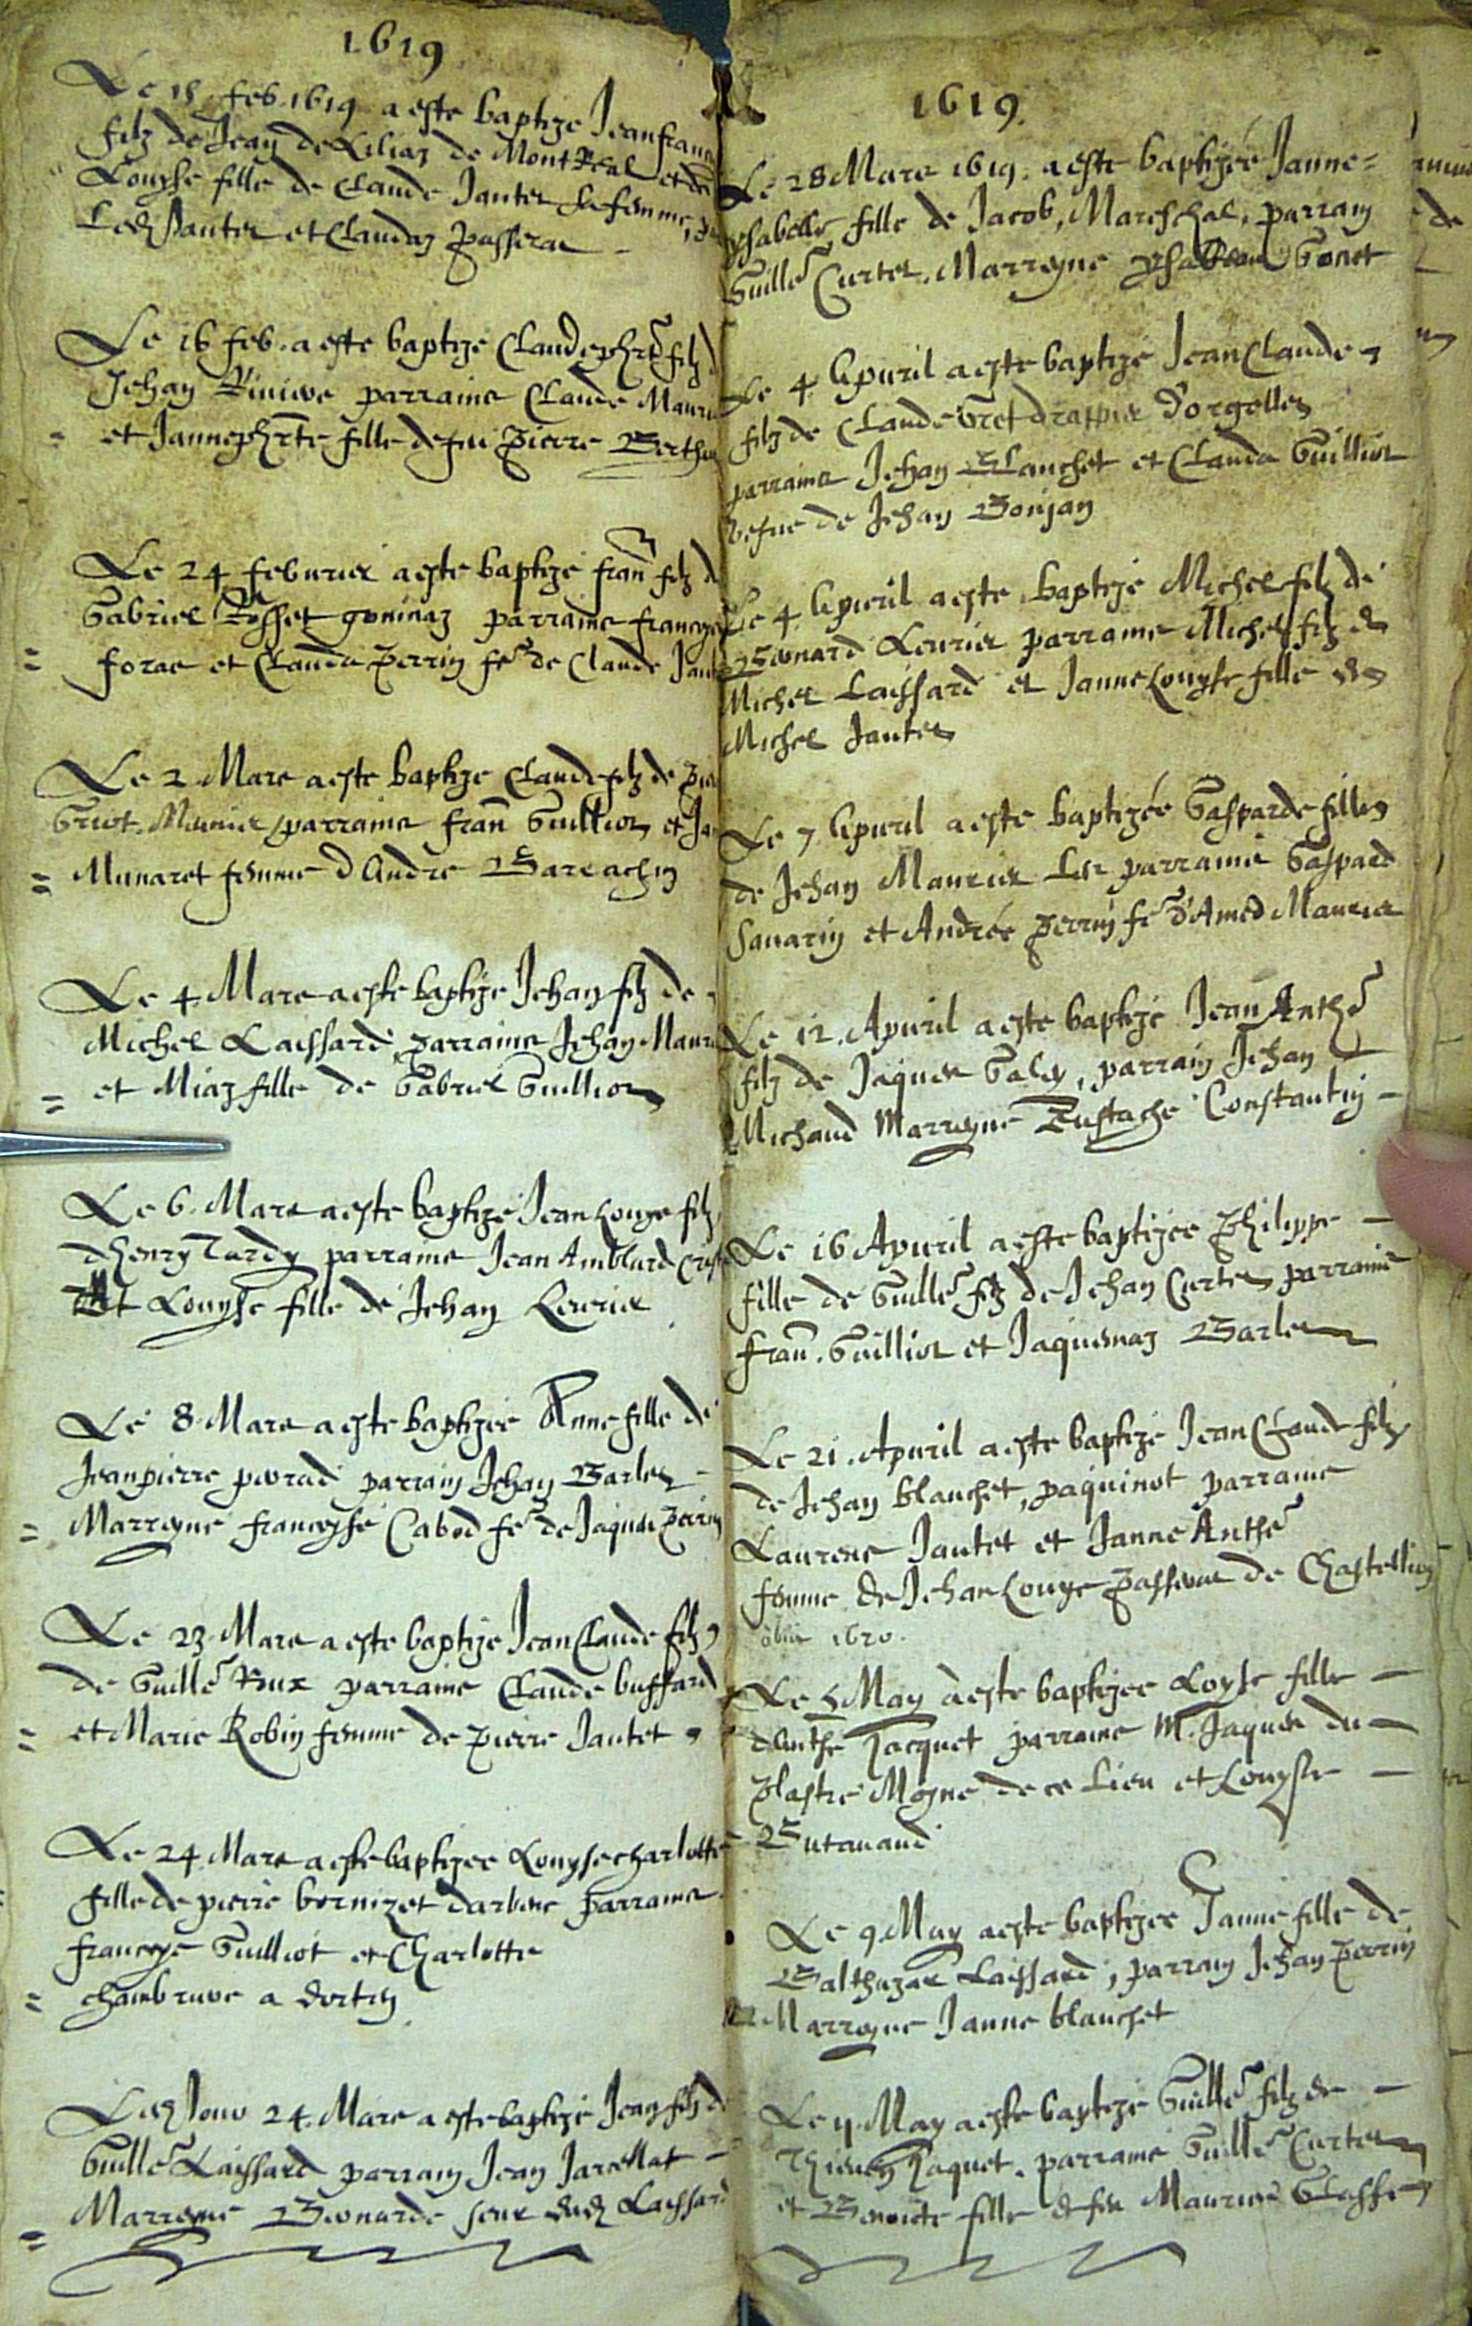 1619
Le 15 feb. 1619. a este baptize Jeanfranc
filz de Jean de Liliaz de Mont Real et de
Louyse fille de Claude Jantet sa femme,
Led Jantet et Claudaz Passerat
Le 16 feb. a este baptize Claude filz
Jehan parrains Claude Mauri
et Janne fille de feu Pierre Berth
Le 24 febvrier a este baptize fran filz d
Gabriel Rosset goninaz parrains francoys
foras et Clauda Perrin fe de Claude Jant
Le 2 Mars a este baptize Claude filz de Pier
Griot. Meunier, parrains fran Guilliot et Ja
Munaret femme d'Andre
Le 4 Mars a este baptize Jehan filz de
Michel Laissard parrains Jehan Mauri
et Miaz fille de Gabriel Guilliot
Le 6. Mars a este baptize Jean Louys filz
d'henry Tardy parrains Jean Amblard
Et Louyse fille de Jehan Levrier
Le 8 Mars a este baptizee Anne fille de
Jeanpierre perrad parrain Jehan Barlet
Marreyne francoyse Cabod fe de Jaques Perrin
Le 23 Mars a este baptize Jean Claude filz
de Guille Rux parrains Claude buffard
et Marie Robin femme de Pierre Jantet
Le 24 Mars a este baptizee Louyse charlotte
fille de pierre bornizet parrains
francoys Guilliot et Charlotte
a dortin
Led Jour 24. Mars a este baptize Jean filz d
Guille Laissard parrain Jean Jarcellat
Marreyne Bernarde seur dud Laissard
1619.
Le 28 Mars 1619. a este baptizée Janne=
ysabelle, fille de Jacob, Mareschal, parrain
Guille Curtet. Marreyne Gonet
Le 4. Apvril a este baptizé Jean Claude
filz de Claude Gret drappier d'orgelles
parrains Jehan Blanchet et Clauda Guilliot
vefue de Jehan Bonjan
Le 4. Apvril a este baptizé Michel filz de
Bernard Levrier parrains Michel filz de
Michel Laissard et Janne Louyse fille de
Michel Jantet
Le 7 Apvril a este baptizée Gasparde fille
de Jehan Maurier parrains Gaspard
Savarin et Andrée Perrin fe d'Amed Maurier
Le 12. Apvril a este baptizé Jean Anthe
filz de Jaques Galey, parrain Jehan
Michaud Marreyne Eustache Constantin
Le 16 Apvril a este baptizee Philippe
fille de Guille filz de Jehan Curtet parrains
fran. Guilliot et Jaquemaz Barlet
Le 21. Apvril a este baptize Jean Claude filz
de Jehan blanchet, paquinot parrains
Laurens Jantet et Janne Anthe
femme de Jehan Louys Passerat de Chastellion
obiit 1620.
Le 5 May a este baptizee Loyse fille
d'Anthe Jacquet parrains M. Jaques du
Plastre Moyne de ce Lieu et Louyse
Butavand
Le 9 May a este baptizee Janne fille de
Balthazar Laissard, parrain Jehan Perrin
Marreyne Janne blanchet
Le 11 May a este baptize Guille filz de
Thieven Jaquet. parrains Guille Curtet
et Benoite fille de feu Maurice